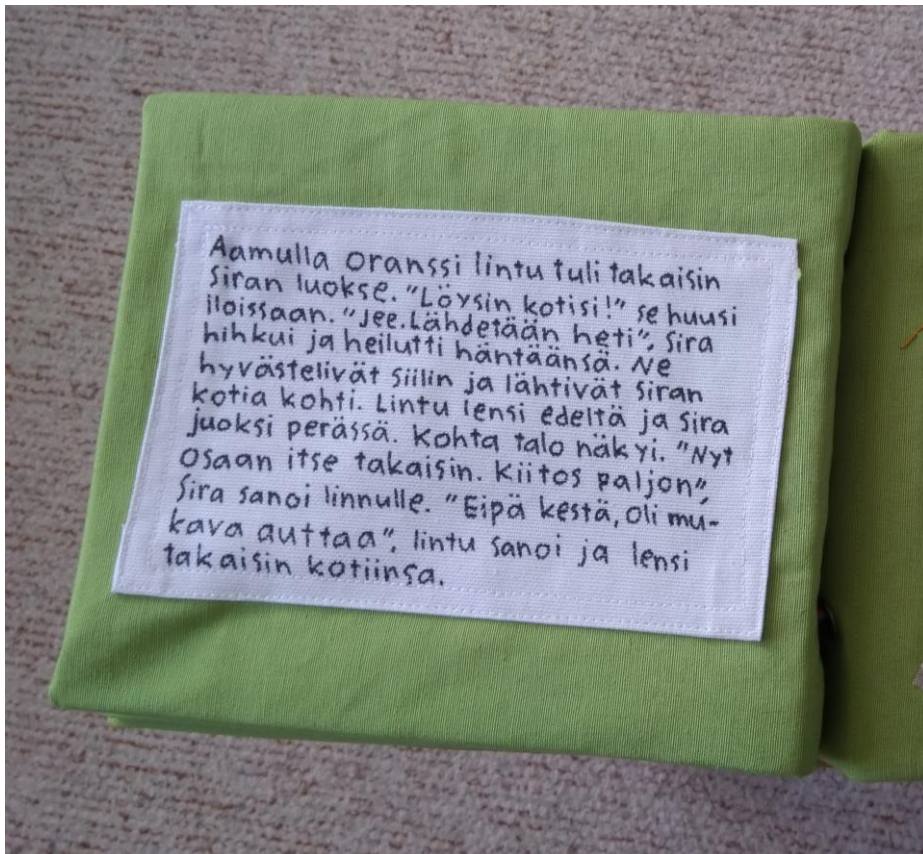 Aamulla oranssi lintu tuli takaisin
Siran luokse. "Löysin kotisi!" se huusi
iloissaan. "Jee. Lähdetään heti", Sira
hihkui ja heilutti häntäänsä. Ne
hyvästelivät siilin ja lähtivät Siran
kotia kohti. Lintu lensi edeltä ja Sira
juoksi perässä. Kohta talo näkyi. "Nyt
osaan itse takaisin. Kiitos paljon",
Sira sanoi linnulle. "Eipä kestä, oli mu-
kava auttaa", lintu sanoi ja lensi
takaisin kotiinsa.